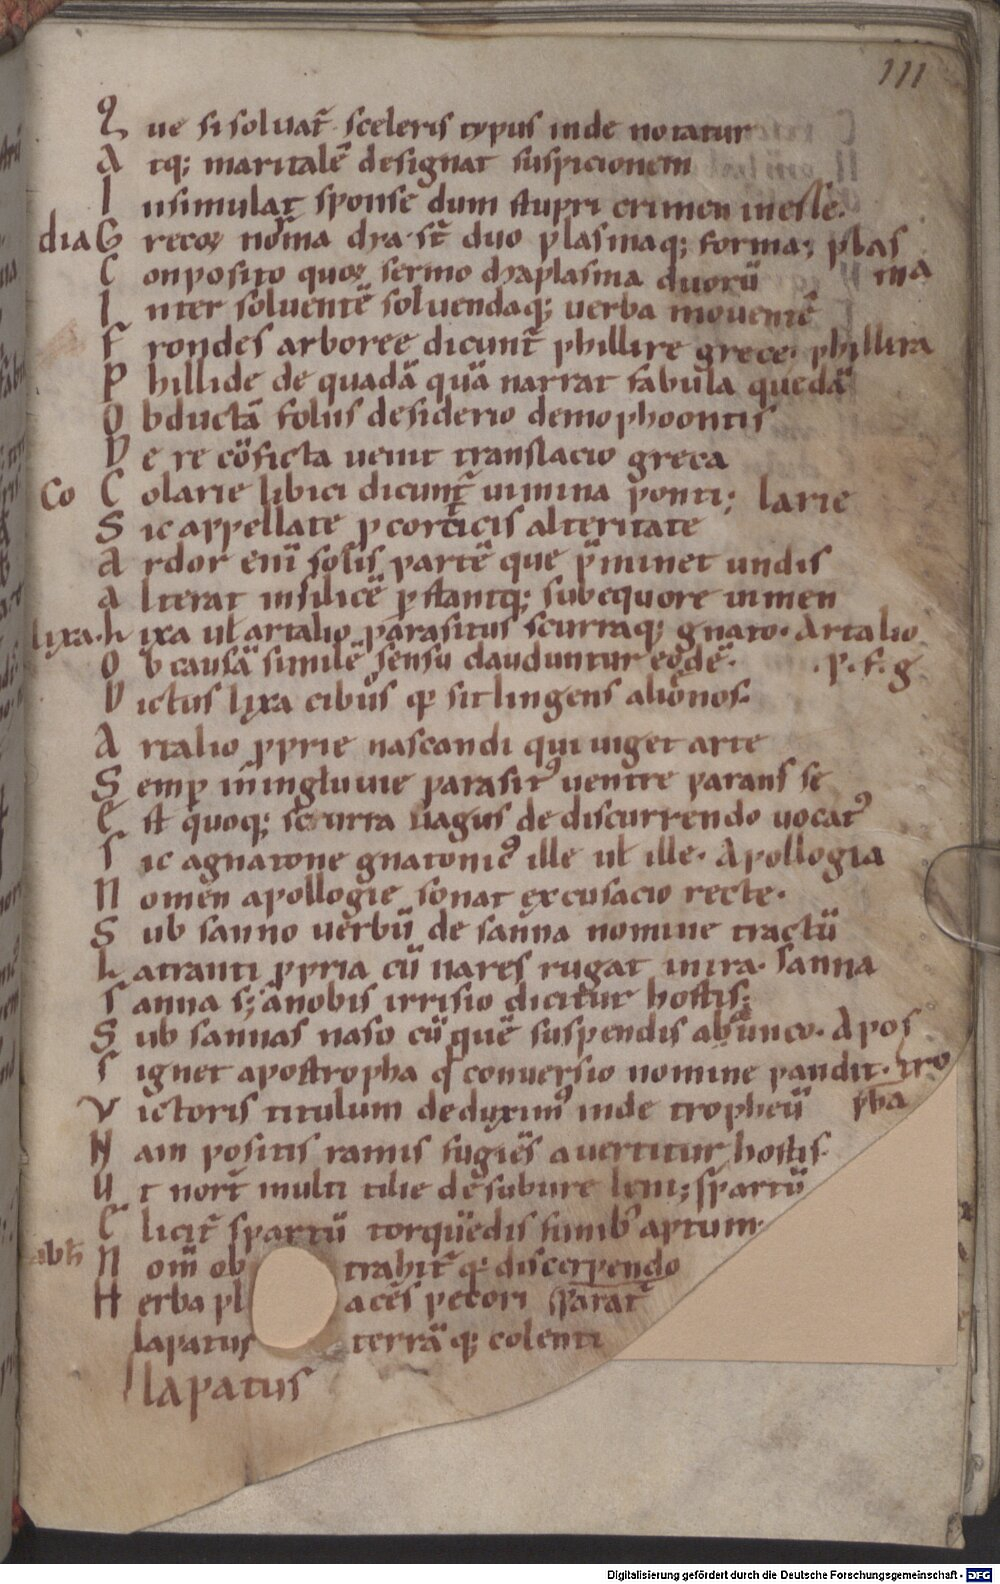 111
Que si soluat̄ sceleris typus inde notatur
Atq; maritalē designat suspicionem
Insimulat sponse dum stupri crimen inesse.
dia Grecoꝝ nom̄a dya st̄ duo plasmaq; forma; plas
Conposito quoꝝ sermo dyaplasma duorū ma
Inter soluentē soluendaq; uerba mouentē
Frondes arboree dicunt̄ phillire grece. phillira
Phillide de quadā quā narrat fabula quedā
Obductā folus desiderio demophoontis
De re cōficta uenit translacio greca
Co Colarie libici dicunt̄ uimina ponti; larie
Sic appellate ꝑ corticis alteritate
Ardor eni̅ solis partē que p̄minet undis
Alterat in silicē ꝑstantq; sub equore uimen
lixa. Lixa ul̄ artalio parasitus scurraq; gnato. Artalio
Ob causā similē sensu clauduntur eodē. .p.f.g
Dictus lyxa cibūs ꝙ sit lingens alionos.
Artalio ꝓprie nascandi qui uiget arte
Semꝑ in ingluuie parasitꝰ uentre parans se
Est quoq; scurra uagus de discurrendo uocatꝰ
Sic agnatone gnatonicꝰ ille ul̄ ille. Apollogia
Nomen apollogie sonat excusacio recte.
Sub sanno uerbū de sanna nomine tractū
Latranti ꝓpria cū nares rugat in ira. Sanna
Sanna s; a nobis irrisio dicitur hostis;
Sub sannas naso cū quē suspendis ab unco. Apos
Signet apostropha ꝙ conuersio nomine pandit. tro
Victoris titulum deduximꝰ inde tropheū pha
Nam positis ramis fugiēs auertitur hostis.
Ut nort̄ multi tilie de subure leni; spartū
Elicit̄ spartū torquēdis funibꝰ aptum.
abh̄ Nom̄ ob trahit̄ ꝙ discerpendo
Herba pl acēs pecori sparat̄
lapatus terrā q; colenti
lapatus
Digitalisierung gefördert durch die Deutsche Forschungsgemeinschaft - DFG